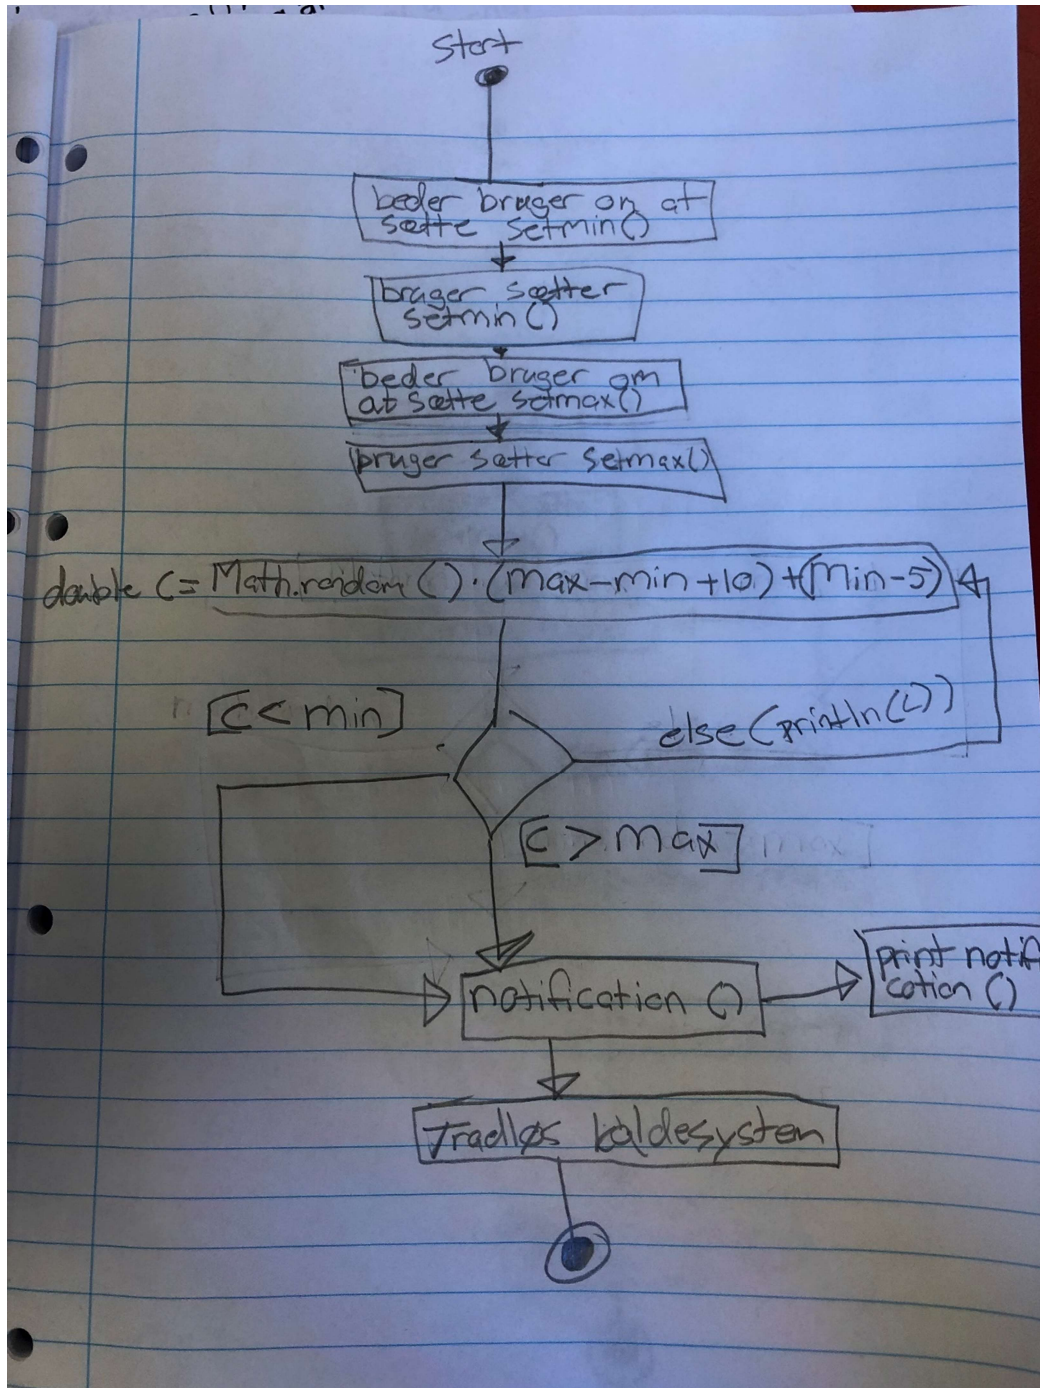 Start
beder bruger om at
sætte setmin()
bruger sætter
setmin()
beder bruger om
at sætte setmax()
bruger sætter setmax()
double C = Math.random()·(max-min+10)+(min-5)
[C < min]
else(println(C))
[C > max]
print notifi
cation()
notification()
Trådløs kaldesystem